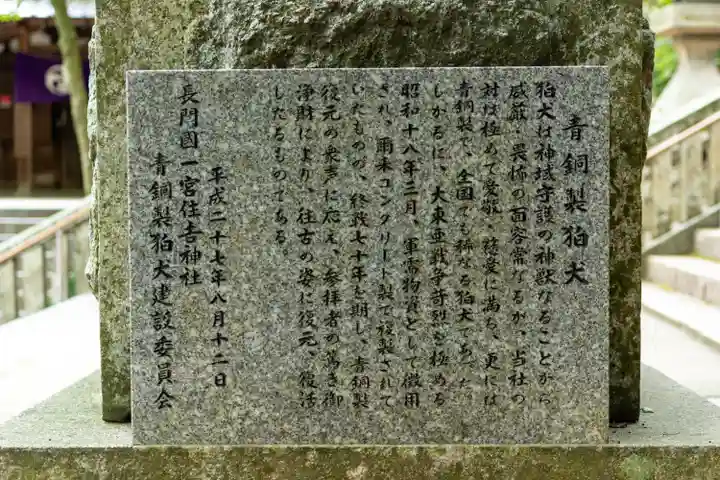 青銅製狛犬
狛犬は神域守護の神獣なることから
威厳・畏怖の面容常なるが、当社の
対は極めて愛敬、慈愛に満ち、更には
青銅製で、全国でも稀なる狛犬であった。
しかるに、大東亜戦争苛烈を極める
昭和十八年二月、軍需物資として徴用
され、爾来コンクリート製で複製されて
いたものの、終戦七十年を期し、青銅製
復元の衆声に応え、参拝者の篤き御
浄財により、往古の姿に復元、復活
したるものである。
平成二十七年八月十二日
長門國一宮住吉神社
青銅製狛犬建設委員会